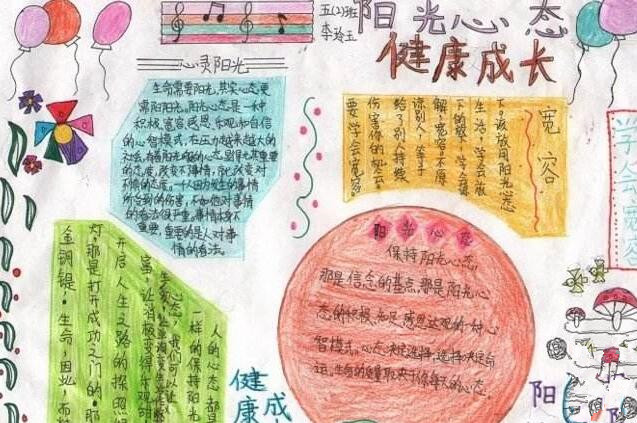 五(2)班
李玲玉
阳光心态
健康成长
心灵阳光
生命需要阳光,其实心态更
需阳光。阳光心态是一种
积极、宽容、感恩、乐观和自信
的心智模式。在压力越来越大的
社会,有着阳光般的心态,显得尤其重要
的态度,改变不了事情,
不惊的态度。一人因为发生的事情
所受到的伤害,不如他对事情
的看法很严重。事情本身不
重要,重要的是人对事
情的看法。
宽容
下。该放用阳光心态
生活,学会放
下的放下,学会理
解,宽容。不原
谅别人,等于
给了别人持续
伤害你的机会。
要学会宽容。
学会宽容
阳光心态
保持阳光心态,
那是信念的基点,那是阳光心
态的积极、充足、感恩达观的一种心
智模式。心态决定选择,选择决定命
运。生命的质量取决于你每天的心态。
人的心态都是
一样的保持阳光
生
开启人生之路的探照
灯,那是打开成功之门的
金钥匙。生命,因此,而
健康
成
阳